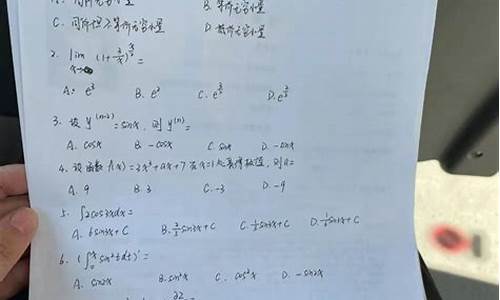 A. 同阶无穷小量 B. 等阶无穷小量
C. 同阶但不等阶无穷小量 D. 无穷小量
2. lim (1+2/x) =
A. e³ B. e² C. e D. e
3. 设 y⁽ⁿ⁻²⁾ = sinx, 则 y⁽ⁿ⁾ =
A. cosx B. -cosx C. sinx D. -sinx
4. 设函数 f(x)=2x³+ax+7 在x=1处取得极值, 则 a=
A. 9 B. 3 C. -3 D. -9
5. ∫2cos3xdx =
A. 6sin3x+C B. 2/3 sin3x+C C. 1/3 sin3x+C D. 1/6 sin3x+C
6. (∫₀ˣ sin²tdt)' =
A. sin2x B. sin²x C. cos²x D. -sin2x